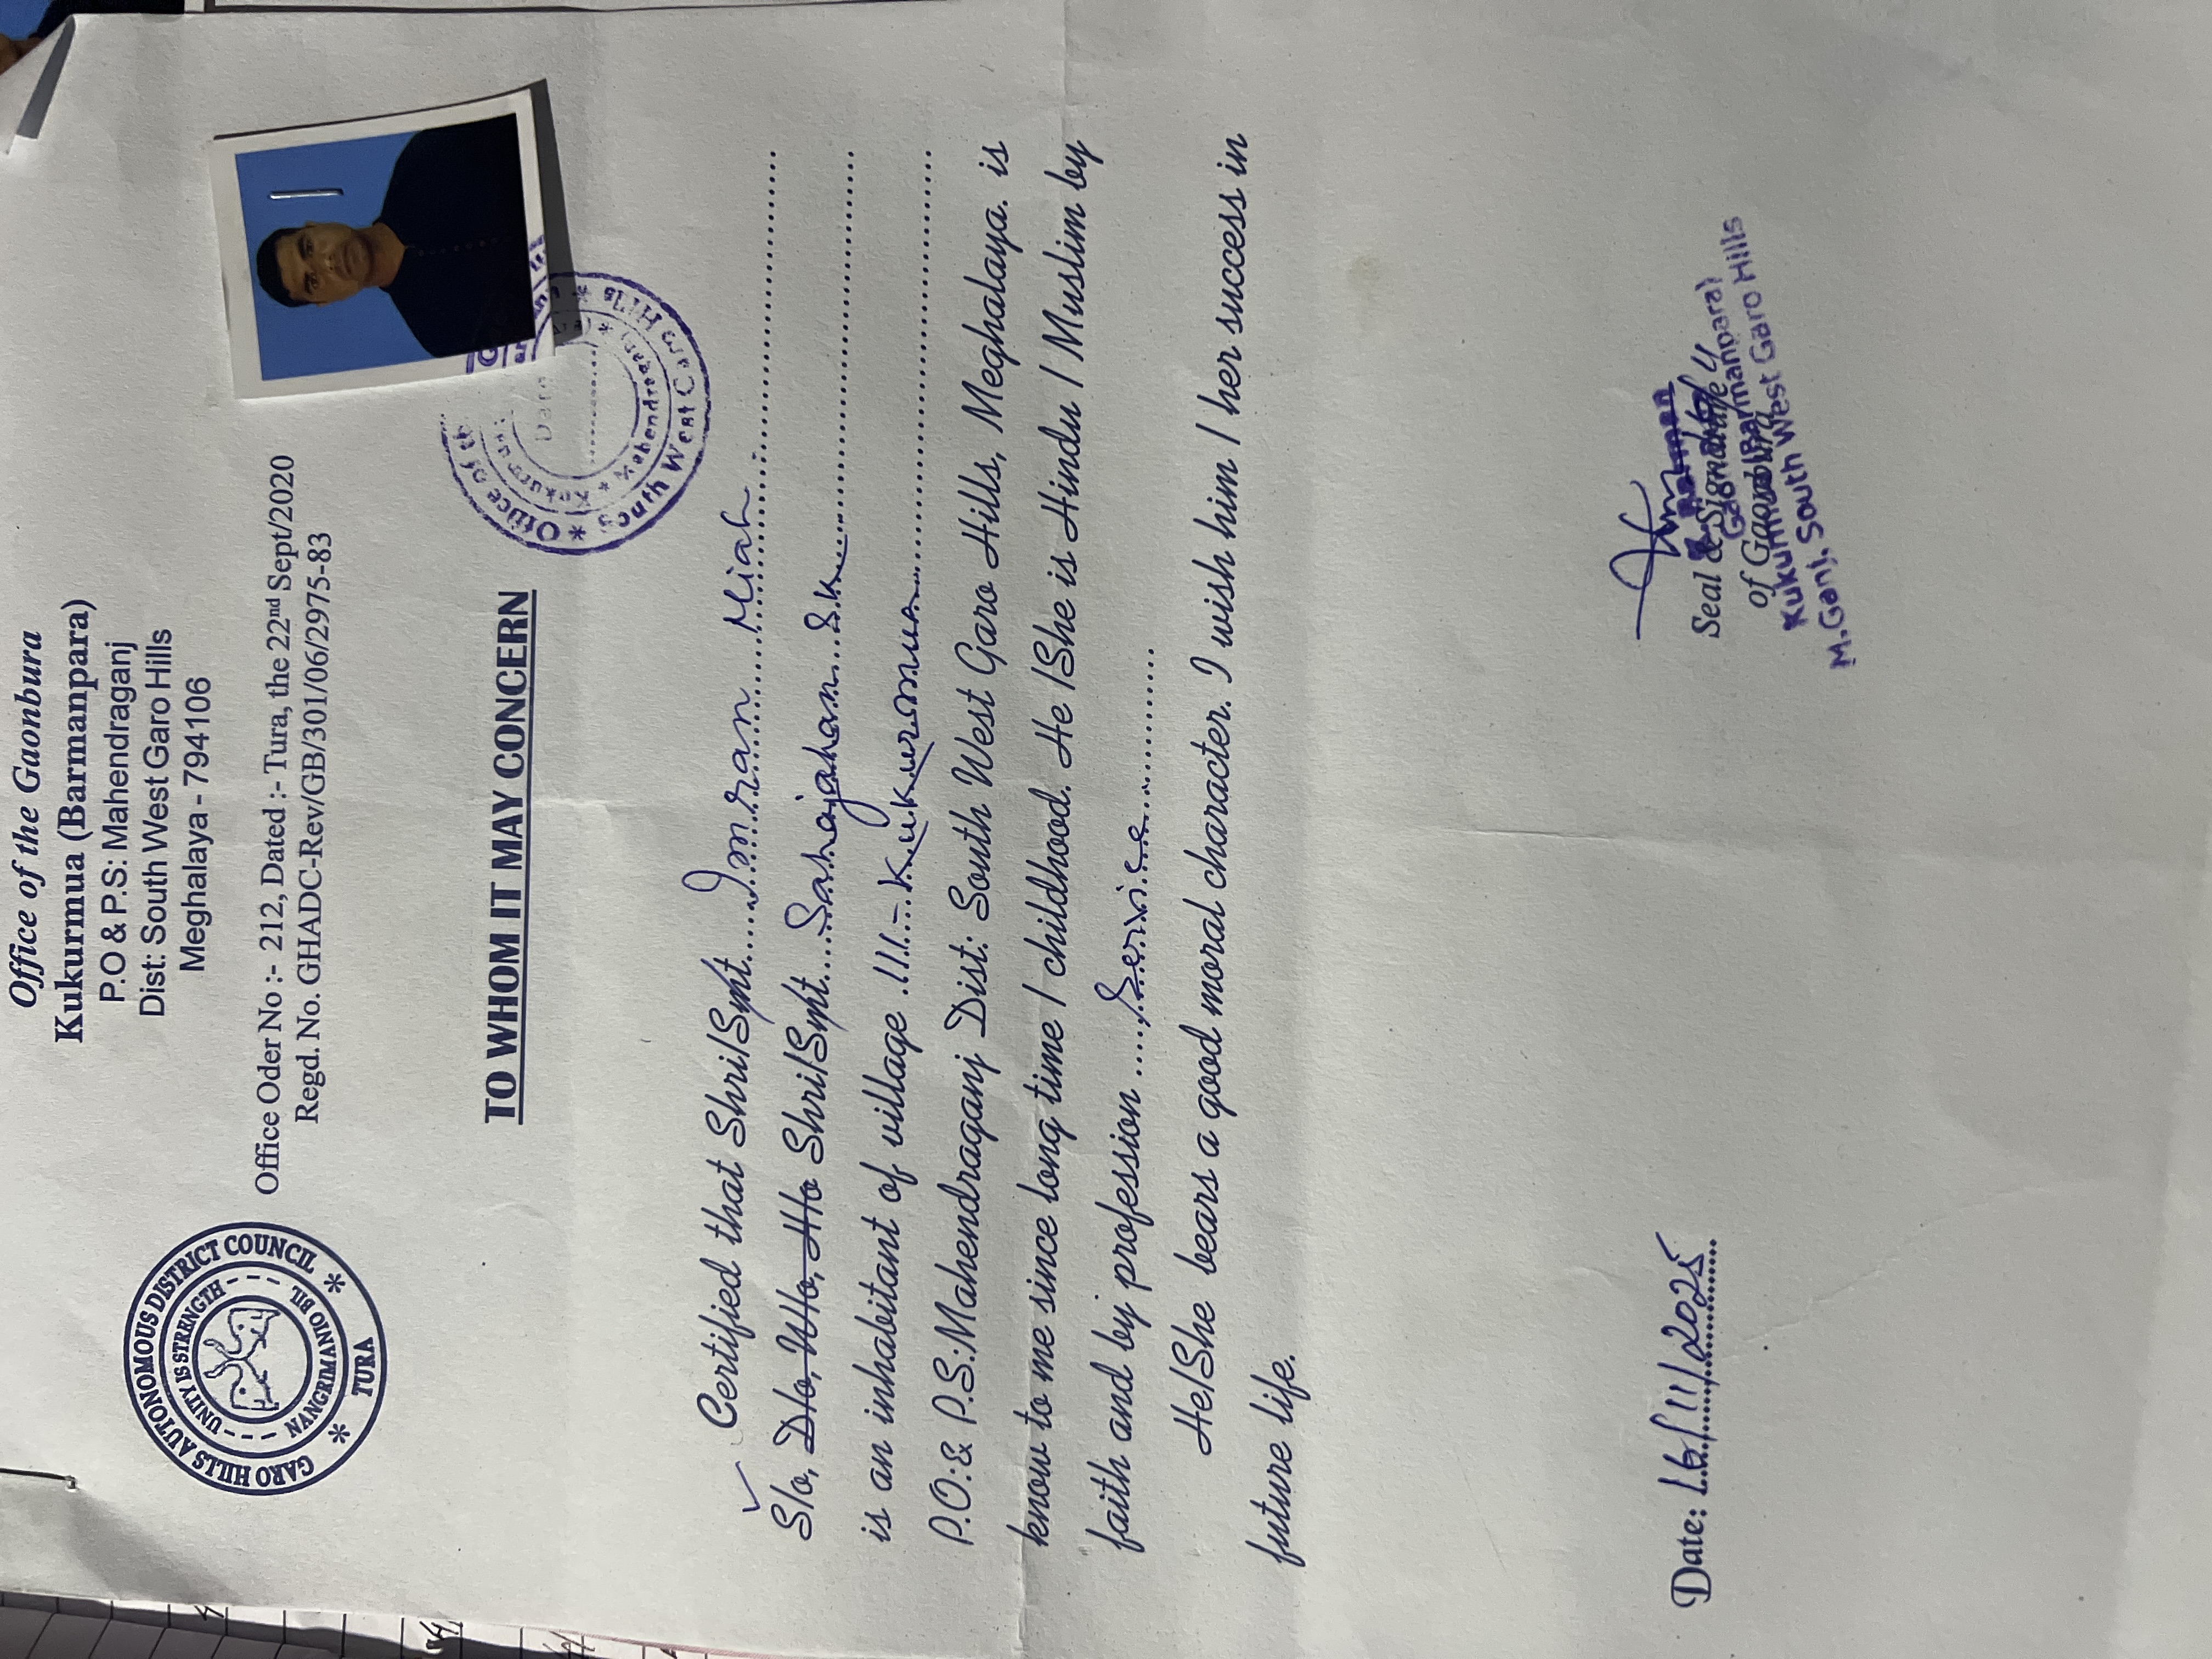 Office of the Gaonbura
Kukurmua (Barmanpara)
P.O & P.S: Mahendraganj
Dist: South West Garo Hills
Meghalaya - 794106
GARO HILLS AUTONOMOUS DISTRICT COUNCIL
UNITY IS STRENGTH
NANGRIMANIO BIL
* TURA *
Office Oder No :- 212, Dated :- Tura, the 22nd Sept/2020
Regd. No. GHADC-Rev/GB/301/06/2975-83
Office of th
Mahendraganj
South West Garo Hills
TO WHOM IT MAY CONCERN
Certified that Shri/Smt. Imran Miah
S/o, D/o, W/o, H/o Shri/Smt. Sahajahan SK
is an inhabitant of village Kukurmua
P.O:& P.S:Mahendraganj Dist: South West Garo Hills, Meghalaya. is
know to me since long time / childhood. He /She is Hindu / Muslim by
faith and by profession Service
He/She bears a good moral character. I wish him / her success in
future life.
Date: 16/11/2025
Seal & Signature
of Gaonbura
Kukurmua (Barmanpara)
M.Ganj, South West Garo Hills